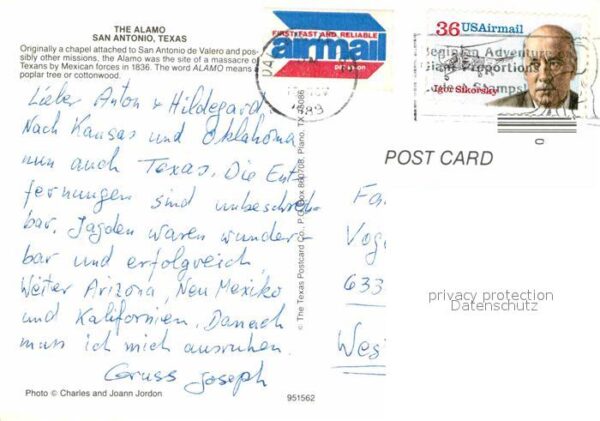 THE ALAMO
SAN ANTONIO, TEXAS
Originally a chapel attached to San Antonio de Valero and pos-
sibly other missions, the Alamo was the site of a massacre of
Texans by Mexican forces in 1836. The word ALAMO means
poplar tree or cottonwood.
Lieber Anton & Hildegard.
Nach Kansas und Oklahoma
nun auch Texas. Die Ent-
fernungen sind unbeschreib-
bar. Jagden waren wunder-
bar und erfolgreich,
Weiter Arizona, Neu Mexiko
und Kalifornien. Danach
muss ich mich ausruhen.
Gruss Joseph
Photo © Charles and Joann Jordon
951562
© The Texas Postcard Co., P.O. Box 860708, Plano, TX 75086
FIRST, FAST AND RELIABLE
airmail
1989
36 USAirmail
Igor Sikorsky
Adventure
Proportions
Stamps
POST CARD
Fa
Vog
633
Wes
privacy protection
Datenschutz
0